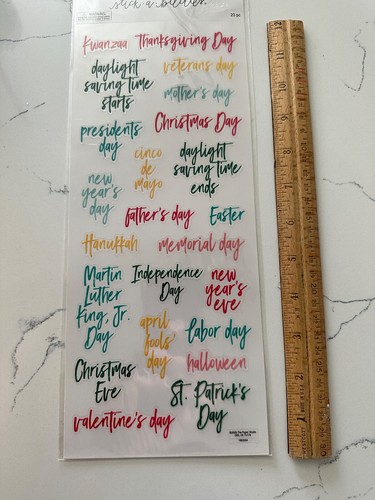 23 pc
Kwanzaa
Thanksgiving Day
daylight
saving time
starts
veterans day
mother's day
presidents
day
Christmas Day
cinco
de
mayo
daylight
saving time
ends
new
year's
day
father's day
Easter
Hanukkah
memorial day
Martin
Luther
King, Jr.
Day
Independence
Day
new
year's
eve
april
fools'
day
labor day
Christmas
Eve
halloween
St. Patrick's
Day
valentine's day
11
9
8
7
5
4
3
2